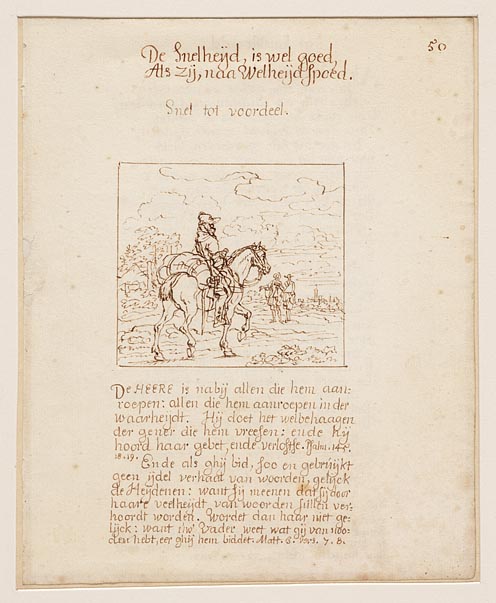 50
De Snelheijd, is wel goed,
Als Zij, naa Welheijd spoed.
Snel tot voordeel.
De HEERE is nabij allen die hem aan-
roepen: allen die hem aanroepen in der
waarheijdt. Hij doet het welbehaagen
der gener die hem vreesen: ende hij
hoord haar gebet, ende verlostse. Psalm. 145.
18.19.
Ende als ghij bid, soo en gebruijkt
geen ijdel verhaal van woorden, gelijck
de Heijdenen: want sij meenen dat sij door
haare veelheijdt van woorden sullen ver-
hoordt worden. Wordet dan haar niet ge-
lijck: want uw Vader weet wat gij van noo-
den hebt, eer ghij hem biddet. Matt. 6. vers. 7. 8.